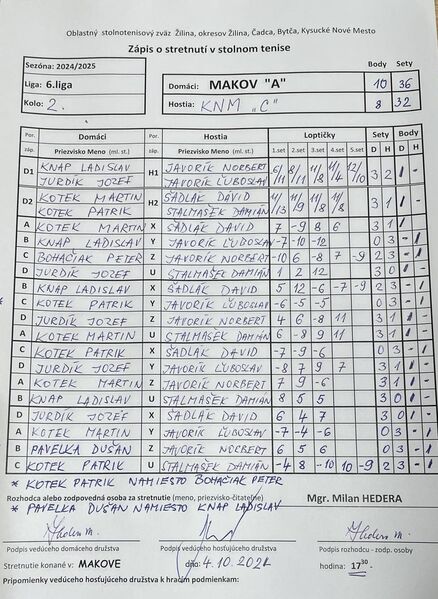 Oblastný stolnotenisový zväz Žilina, okresov Žilina, Čadca, Bytča, Kysucké Nové Mesto
Zápis o stretnutí v stolnom tenise
Sezóna: 2024/2025 Body Sety
Liga: 6.liga Domáci: MAKOV "A" 10 36
Kolo: 2. Hostia: KNM "C" 8 32
Por. Domáci Por. Hostia Loptičky Sety Body
záp. Priezvisko Meno (ml. st.) záp. Priezvisko Meno (ml. st.) 1.set 2.set 3.set 4.set 5.set D H D H
D1 KNAP LADISLAV H1 JAVORÍK NORBERT 6/11 8/11 11/8 11/4 12/10 3 2 1 -
JURDÍK JOZEF JAVORÍK ĽUBOSLAV
D2 KOTEK MARTIN H2 SÁDLAK DAVID 11/13 11/9 11/8 11/8 3 1 1 -
KOTEK PATRIK STALMAŠEK DAMIÁN
A KOTEK MARTIN X SÁDLAK DAVID 7 -9 8 6 3 1 1 -
B KNAP LADISLAV Y JAVORÍK ĽUBOSLAV -7 -10 -12 0 3 - 1
C BOHAČIAK PETER Z JAVORÍK NORBERT -10 6 -8 7 -9 2 3 - 1
D JURDÍK JOZEF U STALMAŠEK DAMIÁN 1 2 12 3 0 1 -
B KNAP LADISLAV X SÁDLAK DAVID 5 12 -6 -7 -9 2 3 - 1
* C KOTEK PATRIK Y JAVORÍK ĽUBOSLAV -6 -5 -5 0 3 - 1
D JURDÍK JOZEF Z JAVORÍK NORBERT 4 6 -8 11 3 1 1 -
A KOTEK MARTIN U STALMAŠEK DAMIÁN 6 -8 9 11 3 1 1 -
C KOTEK PATRIK X SÁDLAK DAVID -7 -9 -6 0 3 - 1
D JURDÍK JOZEF Y JAVORÍK ĽUBOSLAV -8 7 9 7 3 1 1 -
A KOTEK MARTIN Z JAVORÍK NORBERT 7 9 -6 3 1 1 -
B KNAP LADISLAV U STALMAŠEK DAMIÁN 8 5 5 3 0 1 -
D JURDÍK JOZEF X SÁDLAK DAVID 6 4 7 3 0 1 -
A KOTEK MARTIN Y JAVORÍK ĽUBOSLAV -7 -4 -6 0 3 - 1
B PAVELKA DUŠAN Z JAVORÍK NORBERT 6 5 6 3 0 1 -
C KOTEK PATRIK U STALMAŠEK DAMIÁN -4 8 -10 10 -9 2 3 - 1
* KOTEK PATRIK NAMIESTO BOHAČIAK PETER
Rozhodca alebo zodpovedná osoba za stretnutie (meno, priezvisko-čitateľne) Mgr. Milan HEDERA
* PAVELKA DUŠAN NAMIESTO KNAP LADISLAV
Podpis vedúceho domáceho družstva Podpis vedúceho hosťujúceho družstva Podpis rozhodcu - zodp. osoby
Stretnutie konané v: MAKOVE dňa: 4.10.2024 hodina: 17³⁰
Pripomienky vedúceho hosťujúceho družstva k hracím podmienkam: